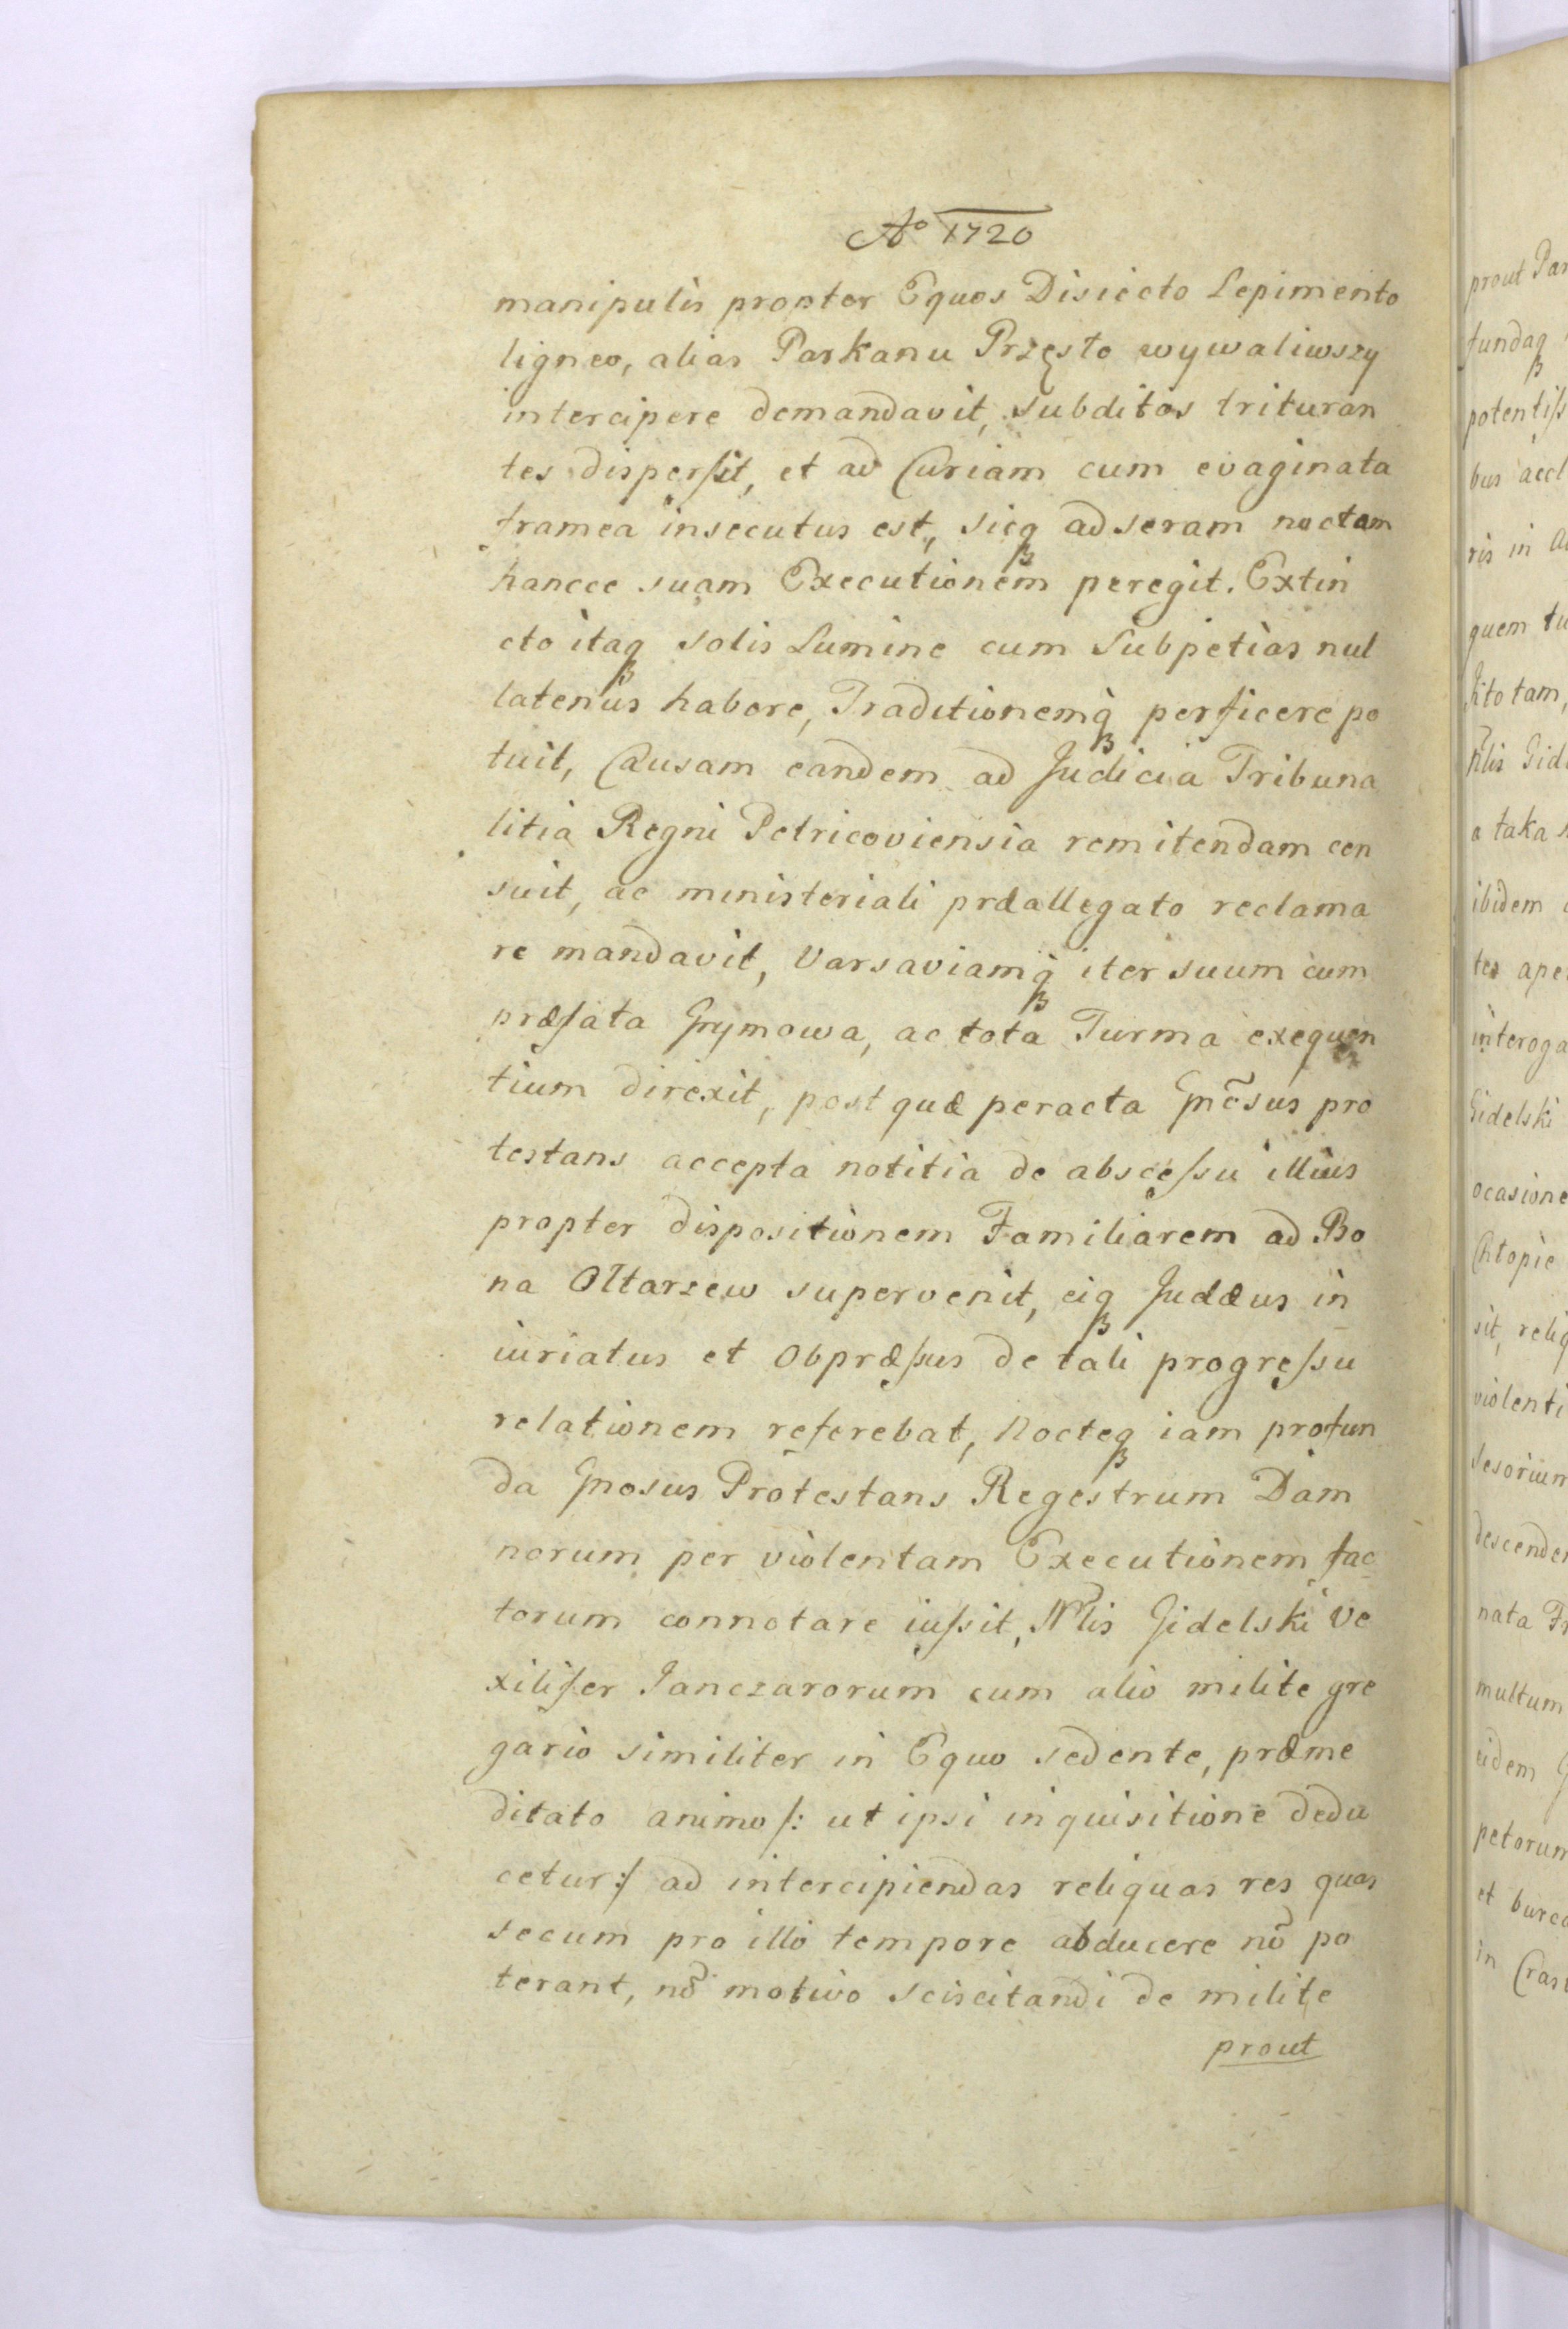 Aº 1720
manipulis propter Equos Disiecto Sepimento
ligneo, alias Parkanu Przęsło wywaliwszy
intercipere demandavit, subditos trituran
tes disperſit, et ad Curiam cum evaginata
framea insecutus est, sicqꝫ ad seram noctem
hancce suam Executionem peregit. Extin
cto itaqꝫ solis Lumine cum Subpetias nul
latenus habere, Traditionemqꝫ perficere po
tuit, Causam eandem ad Judicia Tribuna
litia Regni Petricoviensia remitendam cen
suit, ac ministeriali præallegato reclama
re mandavit, Varsaviamqꝫ iter suum cum
præfata Grymowa, ac tota Turma exequen
tium direxit, post quæ peracta Gnõsus pro
testans accepta notitia de absceſsu illius
propter dispositionem Familiarem ad Bo
na Ołtarzew supervenit, eiqꝫ Judæus in
iuriatus et Obpræſsus de tali progreſsu
relationem referebat, Nocteqꝫ iam profun
da Gnosus Protestans Regestrum Dam
norum per violentam Executionem fac
torum connotare iuſsit, Nlis Gidelski Ve
xilifer Janczarorum cum alio milite gre
gario similiter in Equo sedente, præme
ditato animo /: ut ipsi inquisitione dedu
cetur :/ ad intercipiendas reliquas res quas
secum pro illo tempore abducere nõ po
terant, nõ motivo sciscitandi de milite
prout
prout Par
fundaqꝫ
potentiſs
bus accl
ris in
quem tu
a taka
ibidem
tes ape
interoga
Gidelski
ocasione
Chłopie
sit, reliq
violenti
descender
nata Fr
multum
eidem
petorum